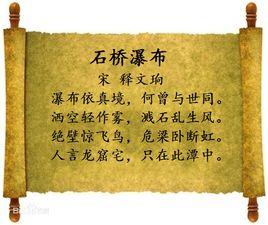 石桥瀑布
宋 释文珦
瀑布依真境，何曾与世同。
洒空轻作雾，溅石乱生风。
绝壁惊飞鸟，危梁卧断虹。
人言龙窟宅，只在此潭中。